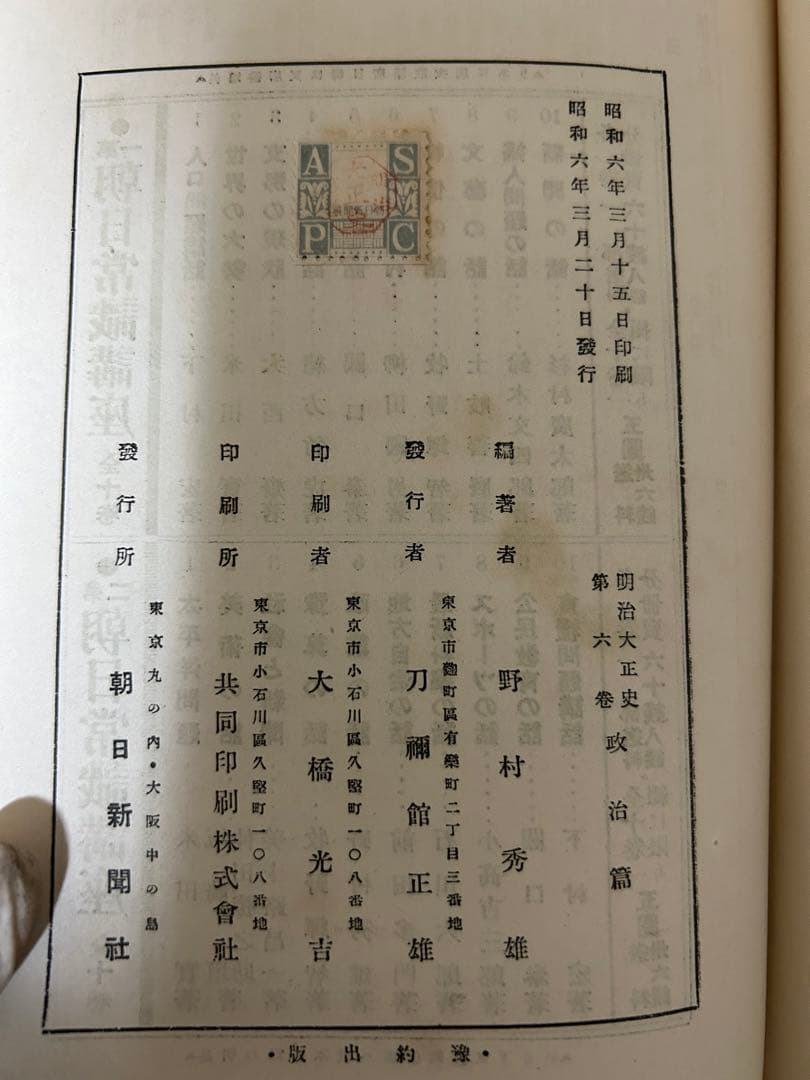 昭和六年三月十五日印刷
昭和六年三月二十日發行
明治大正史
第六卷
政治篇
編著者
野村秀雄
發行者
東京市麴町區有樂町二丁目三番地
刀禰館正雄
印刷者
東京市小石川區久堅町一〇八番地
大橋光吉
印刷所
東京市小石川區久堅町一〇八番地
共同印刷株式會社
發行所
東京丸の内・大阪中の島
朝日新聞社
A S
P C
・版出約豫・